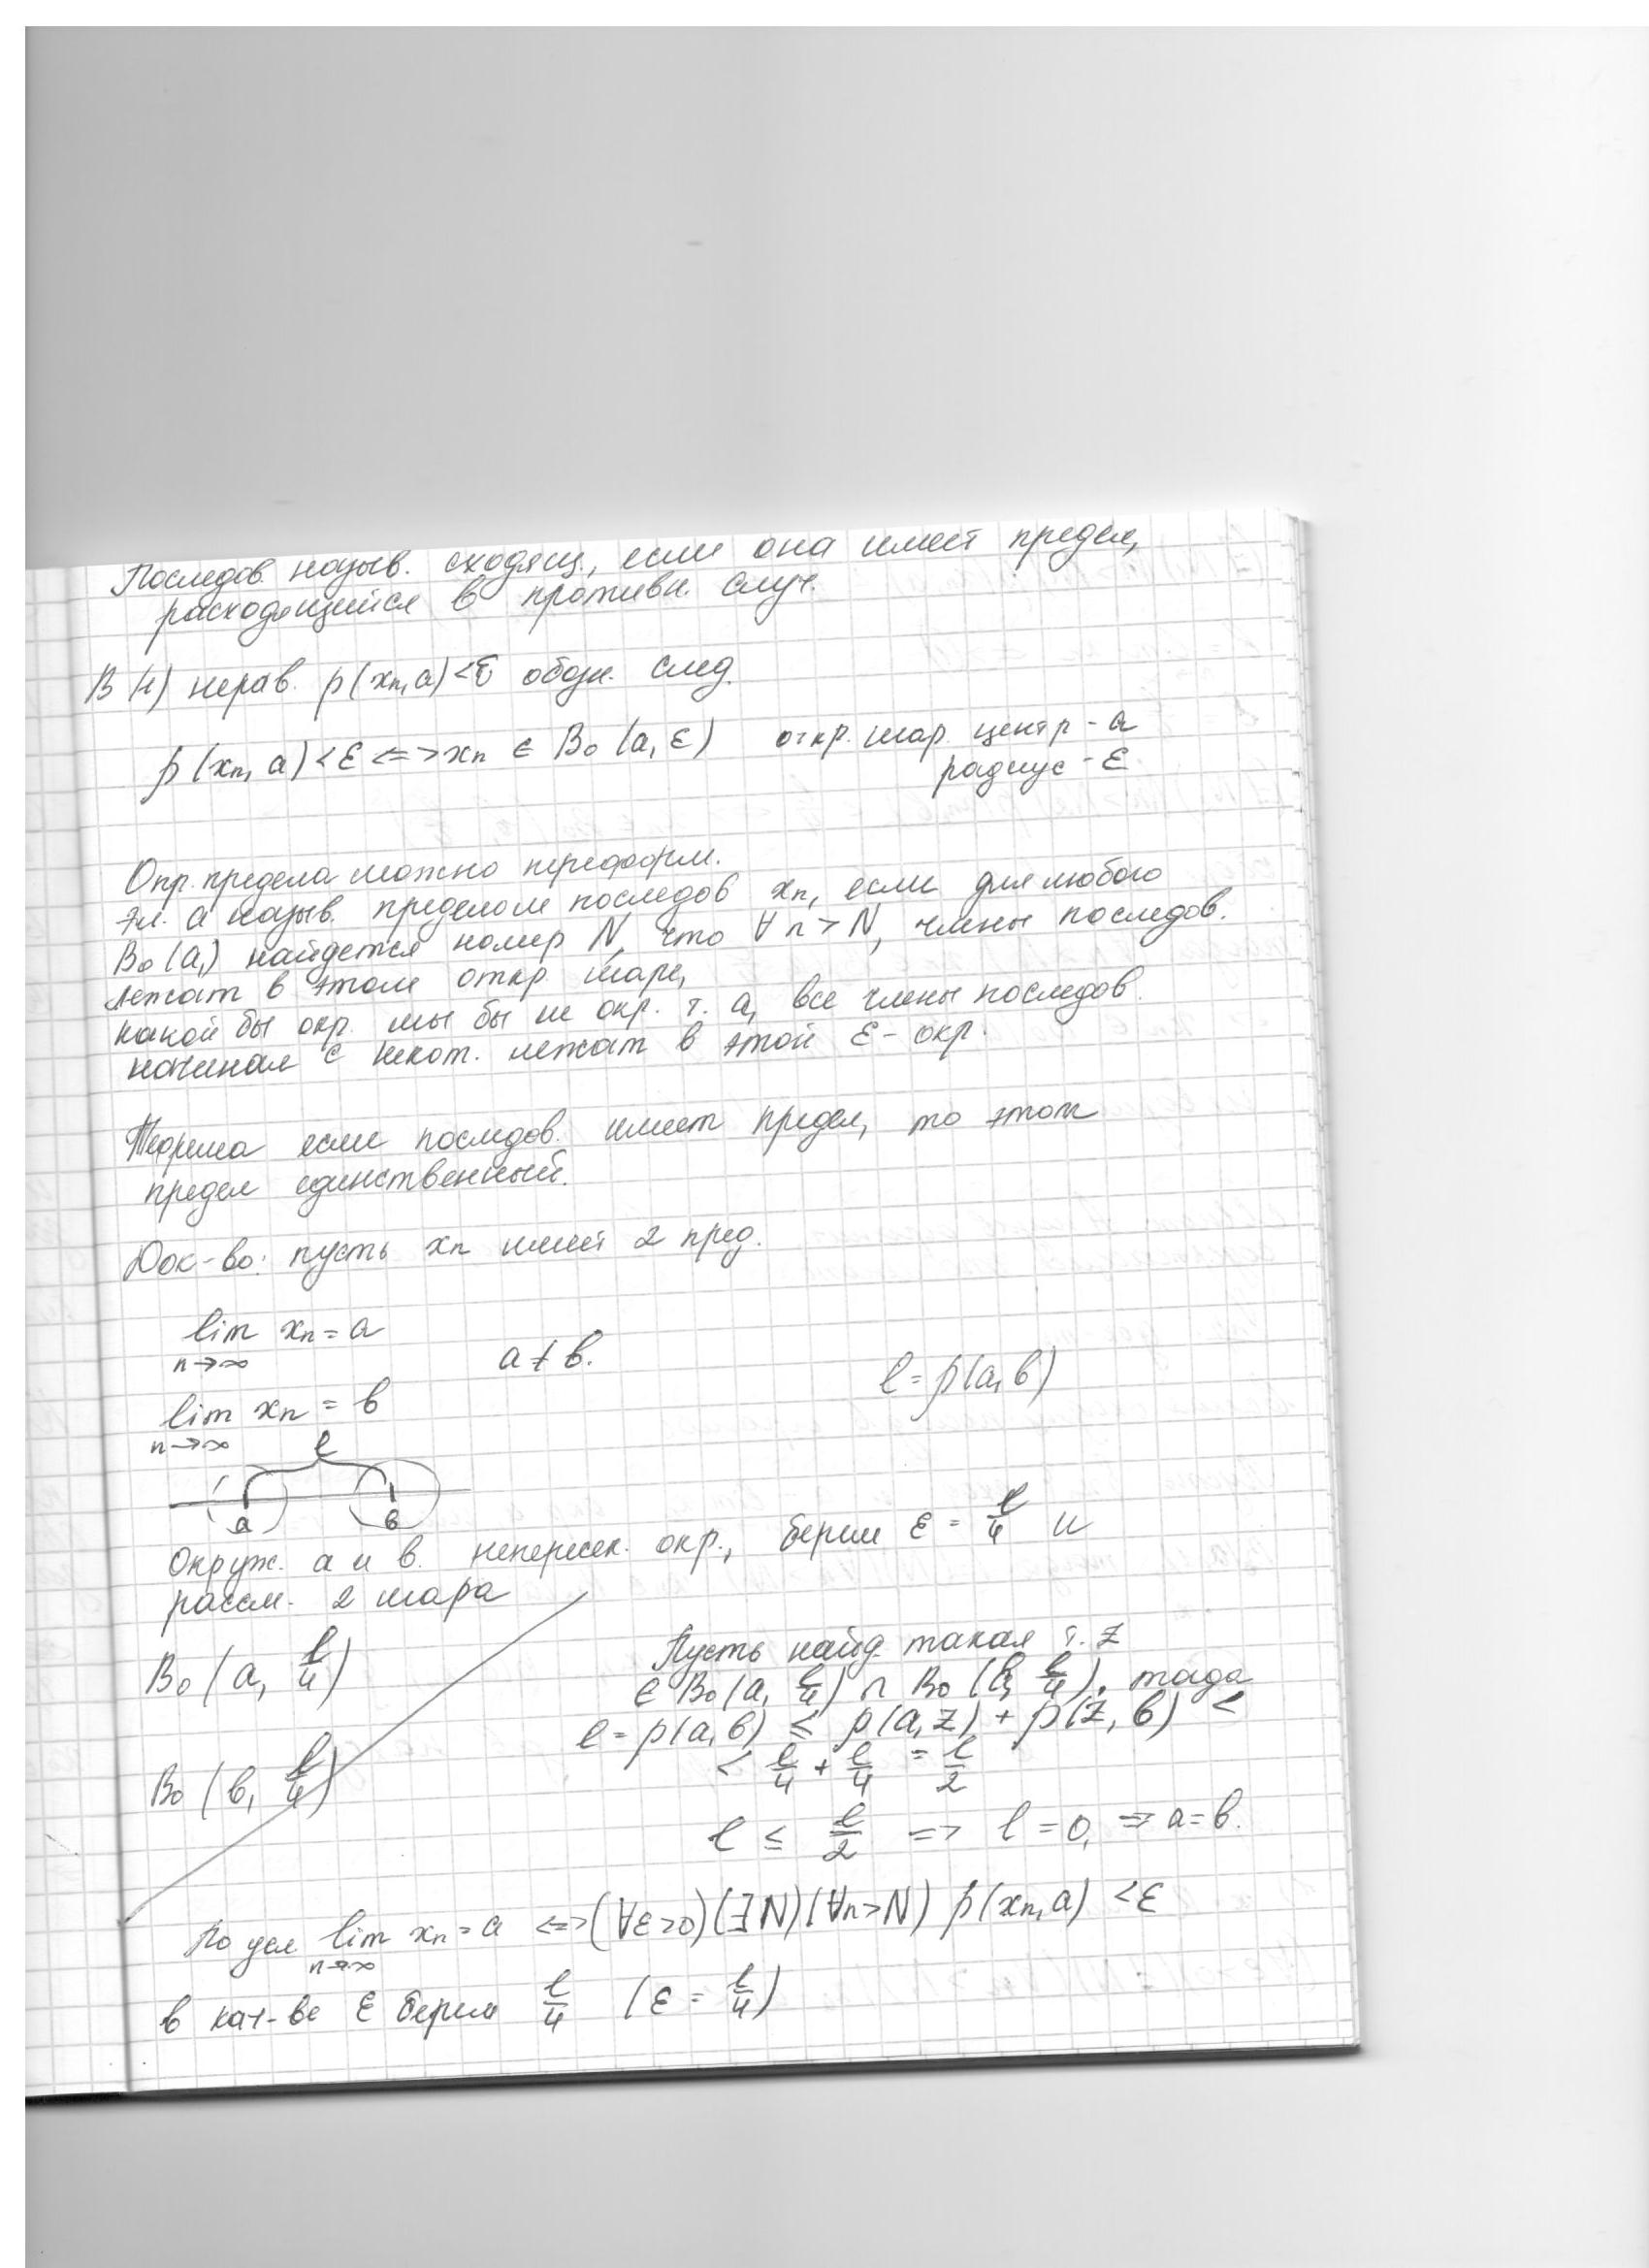 Последов. назыв. сходящ., если она имеет предел,
расходящейся в противн. случ.
В (1) нерав. ρ(xₙ, a) < ε обозн. след.
ρ(xₙ, a) < ε <=> xₙ ∈ B₀ (a, ε) откр. шар. центр - a
радиус - ε
Опр. предела можно переформ.
эл. a назыв. пределом последов xₙ, если для любого
B₀ (a,) найдется номер N, что ∀ n > N, члены последов.
лежат в этом откр. шаре,
какой бы окр. мы бы не окр. т. a, все члены последов.
начиная с некот. лежат в этой ε - окр.
Теорема если последов. имеет предел, то этот
предел единственный.
Док-во: пусть xₙ имеет 2 пред.
lim xₙ = a
n→∞
a ≠ b.
l = ρ(a, b)
lim xₙ = b
n→∞
l
a b
Окруж. a и b. непересек. окр., берем ε = l/4 и
рассм. 2 шара
B₀ (a, l/4)
B₀ (b, l/4)
Пусть найд. такая т. z
∈ B₀ (a, l/4) ∩ B₀ (b, l/4), тогда
l = ρ(a, b) ≤ ρ(a, z) + ρ(z, b) <
< l/4 + l/4 = l/2
l ≤ l/2 => l = 0, => a = b.
По усл lim xₙ = a <=> (∀ε>0)(∃N)(∀n>N) ρ(xₙ, a) < ε
n→∞
в кач-ве ε берем l/4 (ε = l/4)